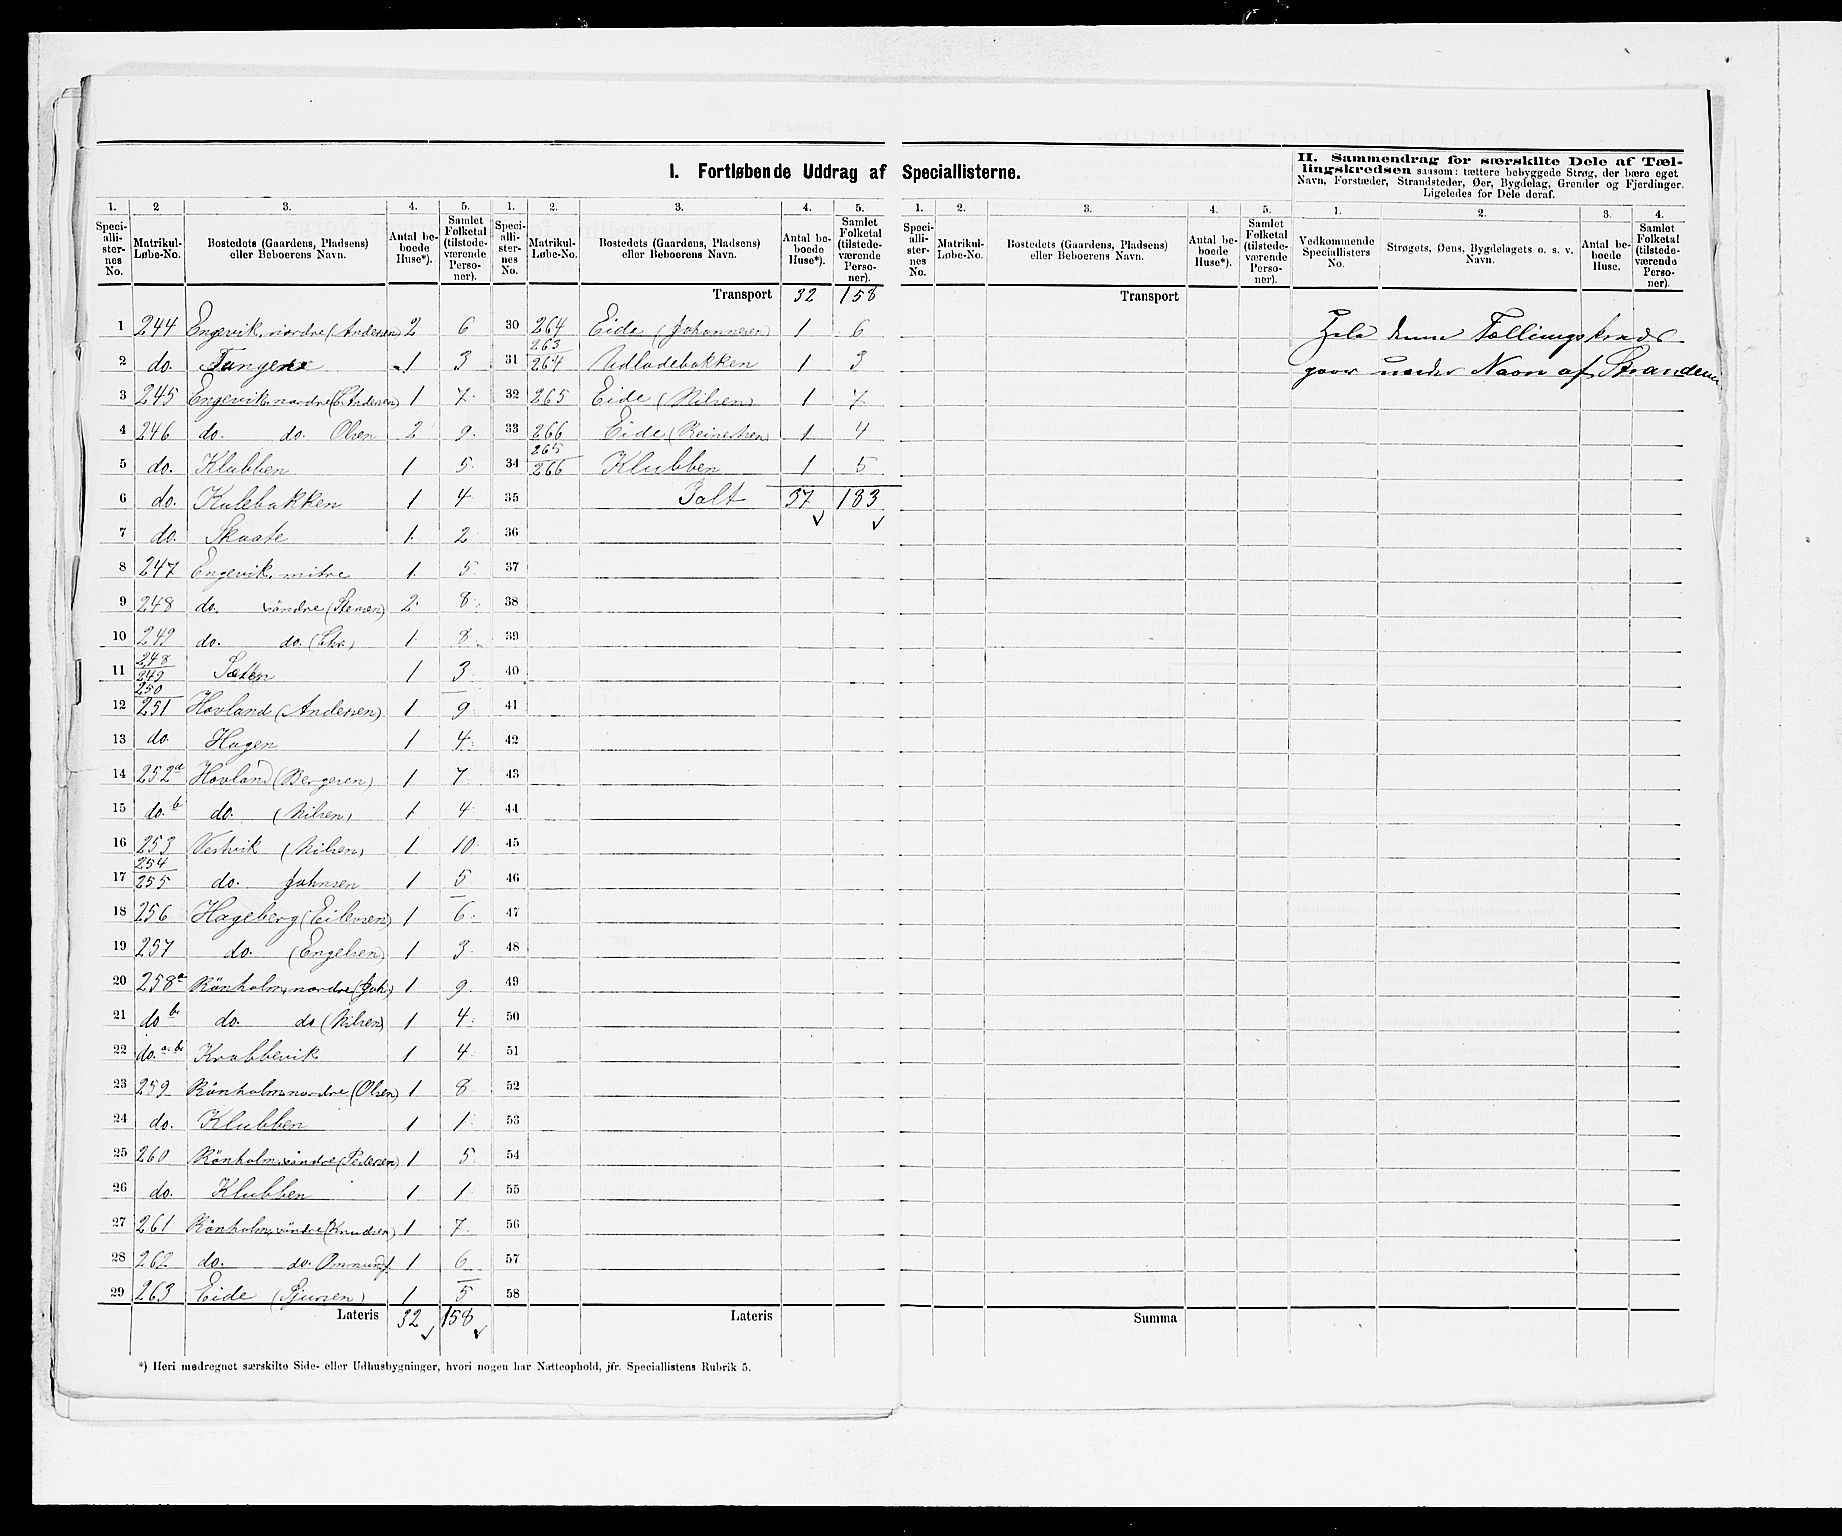 I. Fortløbende Uddrag af Speciallisterne.
II. Sammendrag for særskilte Dele af Tæl-
lingskredsen saasom: tættere bebyggede Strøg, der bære eget
Navn, Forstæder, Strandsteder, Øer, Bygdelag, Grender og Fjerdinger.
Ligeledes for Dele deraf.
1. 2 3. 4. 5. 1. 2. 3. 4. 5. 1. 2. 3. 4. 5. 1. 2. 3. 4.
Speci-alli-ster-nes No. Matrikul-Løbe-No. Bostedets (Gaardens, Pladsens) eller Beboerens Navn. Antal be-boede Huse*). Samlet Folketal (tilstede-værende Perso-ner).
Speci-alli-ster-nes No. Matrikul-Løbe-No. Bostedets (Gaardens, Pladsens) eller Beboerens Navn. Antal be-boede Huse*). Samlet Folketal (tilstede-værende Perso-ner).
Speci-alli-ster-nes No. Matrikul-Løbe-No. Bostedets (Gaardens, Pladsens) eller Beboerens Navn. Antal be-boede Huse*). Samlet Folketal (tilstede-værende Perso-ner).
Vedkommende Speciallisters No. Strøgets, Øens, Bygdelagets o. s. v. Navn. Antal be-boede Huse. Samlet Folketal (tilstede-værende Perso-ner).
1 244 Engevik, nordre (Andersen) 2 6
2 do. Tangene 1 3
3 245 Engevik, nordre (Andersen) 1 7
4 246 do. do. Olsen 2 9
5 do. Klubben 1 5
6 do. Kulebakken 1 4
7 do. Skaate 1 2
8 247 Engevik, mitre 1 5
9 248 do. söndre (Stensen) 2 8
10 249 do. do. (Chr.) 1 8
11 248/249 Sæten 1 3
12 250/251 Hovland (Andersen) 1 9
13 do. Hagen 1 4
14 252a Hovland (Bergesen) 1 7
15 do. b do. (Nilsen) 1 4
16 253 Vestvik (Nilsen) 1 10
17 254/255 do. Johnsen 1 5
18 256 Hageberg (Eilevsen) 1 6
19 257 do. (Engelsen) 1 3
20 258a Rönholm, nordre (Joh.) 1 9
21 do b. do. do (Nilsen) 1 4
22 do. a. b. Krabbevik 1 4
23 259 Rönholm nordre (Olsen) 1 8
24 do. Klubben 1 1
25 260 Rönholm, söndre (Pedersen) 1 5
26 do. Klubben 1 1
27 261 Rönholm, söndre (Knudsen) 1 7
28 262 do. do. Ommund 1 6
29 263 Eide (Sjursen) 1 5
Lateris 32 158
Transport 32 158
30 264 Eide (Johannesen) 1 6
31 263/264 Udladebakken 1 3
32 265 Eide (Nilsen) 1 7
33 266 Eide (Reinertsen) 1 4
34 265/266 Klubben 1 5
35 Ialt 37 183
36
37
38
39
40
41
42
43
44
45
46
47
48
49
50
51
52
53
54
55
56
57
58
Lateris
Transport
Summa
Hele denne Tællingskreds
gaar under Navn af Strandene
*) Heri medregnet særskilte Side- eller Udhusbygninger, hvori nogen har Natteophold, jfr. Speciallistens Rubrik 5.